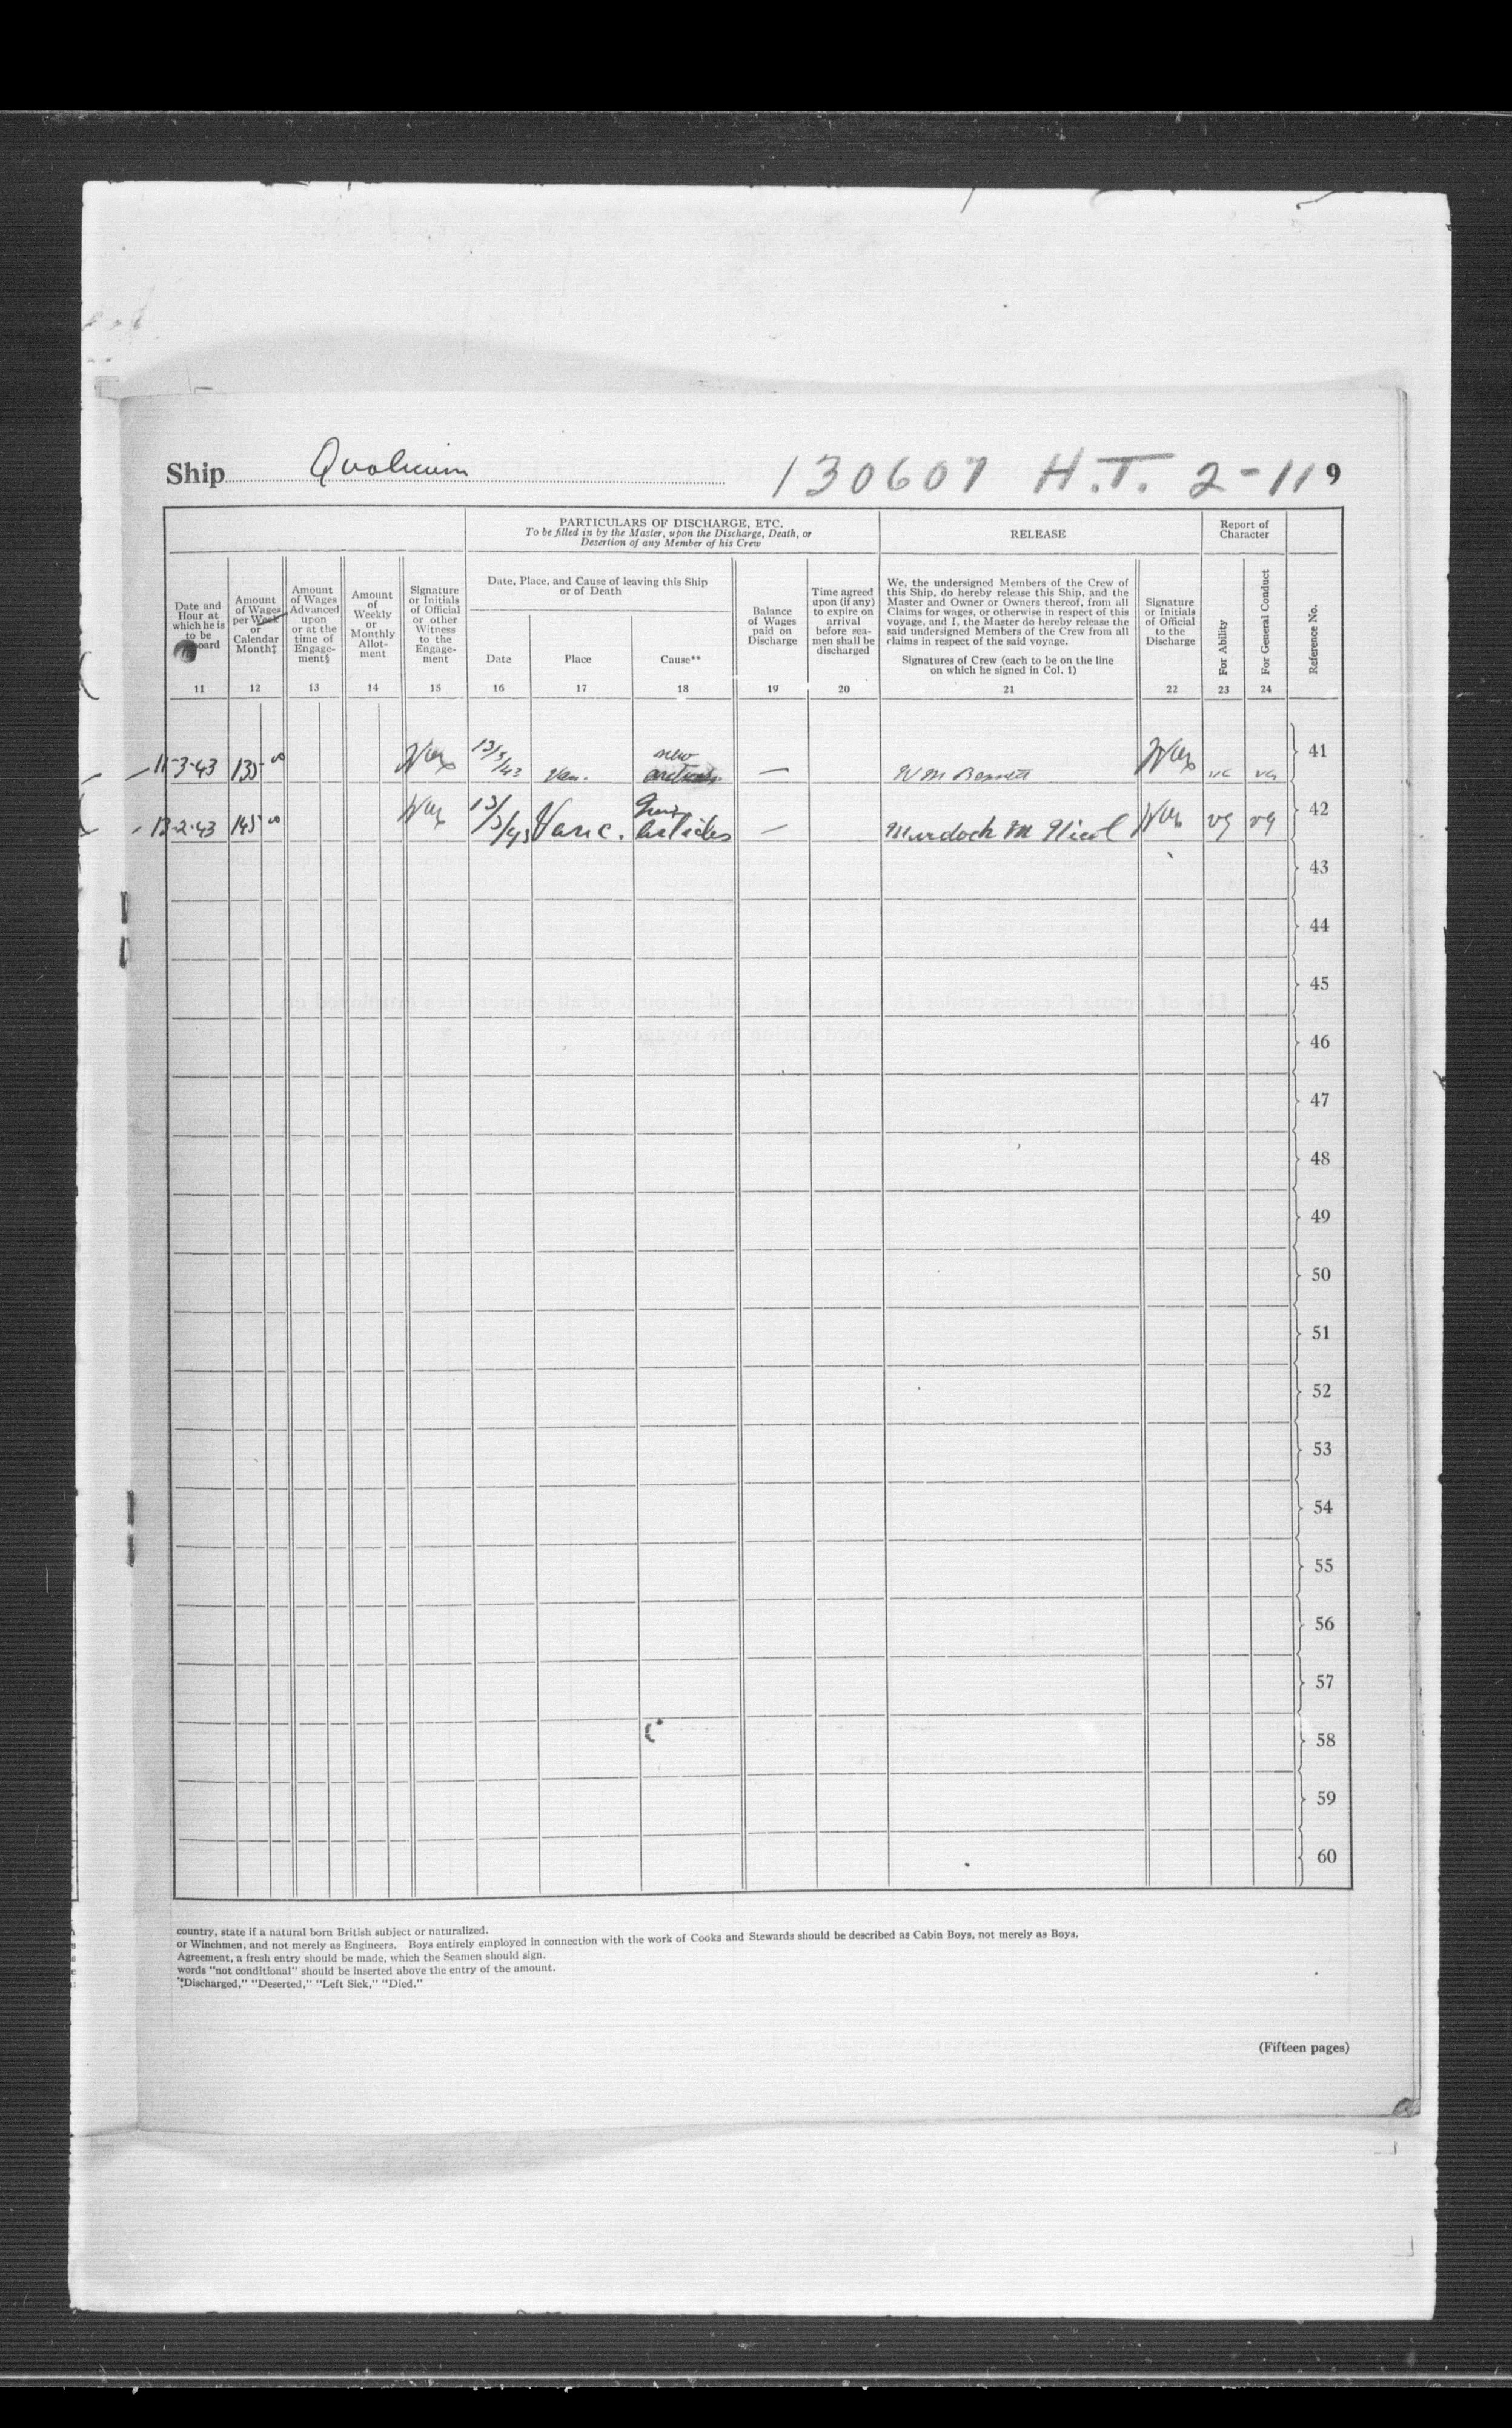 Ship Qualicum 130607 H.T. 2-11 9
PARTICULARS OF DISCHARGE, ETC.
To be filled in by the Master, upon the Discharge, Death, or
Desertion of any Member of his Crew
RELEASE
Report of
Character
Date and
Hour at
which he is
to be
board
11
Amount
of Wages
per Week
or
Calendar
Month‡
12
Amount
of Wages
Advanced
upon
or at the
time of
Engage-
ment§
13
Amount
of
Weekly
or
Monthly
Allot-
ment
14
Signature
or Initials
of Official
or other
Witness
to the
Engage-
ment
15
Date, Place, and Cause of leaving this Ship
or of Death
Date
16
Place
17
Cause**
18
Balance
of Wages
paid on
Discharge
19
Time agreed
upon (if any)
to expire on
arrival
before sea-
men shall be
discharged
20
We, the undersigned Members of the Crew of
this Ship, do hereby release this Ship, and the
Master and Owner or Owners thereof, from all
Claims for wages, or otherwise in respect of this
voyage, and I, the Master do hereby release the
said undersigned Members of the Crew from all
claims in respect of the said voyage.
Signatures of Crew (each to be on the line
on which he signed in Col. 1)
21
Signature
or Initials
of Official
to the
Discharge
22
For Ability
23
For General Conduct
24
Reference No.
11-3-43 135 00 13/3/43 Van. new — Wm Bennett VG VG 41
13-2-43 145 00 13/3/43 Vanc. Articles — Murdoch M Nicol VG VG 42
43
44
45
46
47
48
49
50
51
52
53
54
55
56
57
58
59
60
country, state if a natural born British subject or naturalized.
or Winchmen, and not merely as Engineers. Boys entirely employed in connection with the work of Cooks and Stewards should be described as Cabin Boys, not merely as Boys.
Agreement, a fresh entry should be made, which the Seamen should sign.
words "not conditional" should be inserted above the entry of the amount.
"Discharged," "Deserted," "Left Sick," "Died."
(Fifteen pages)